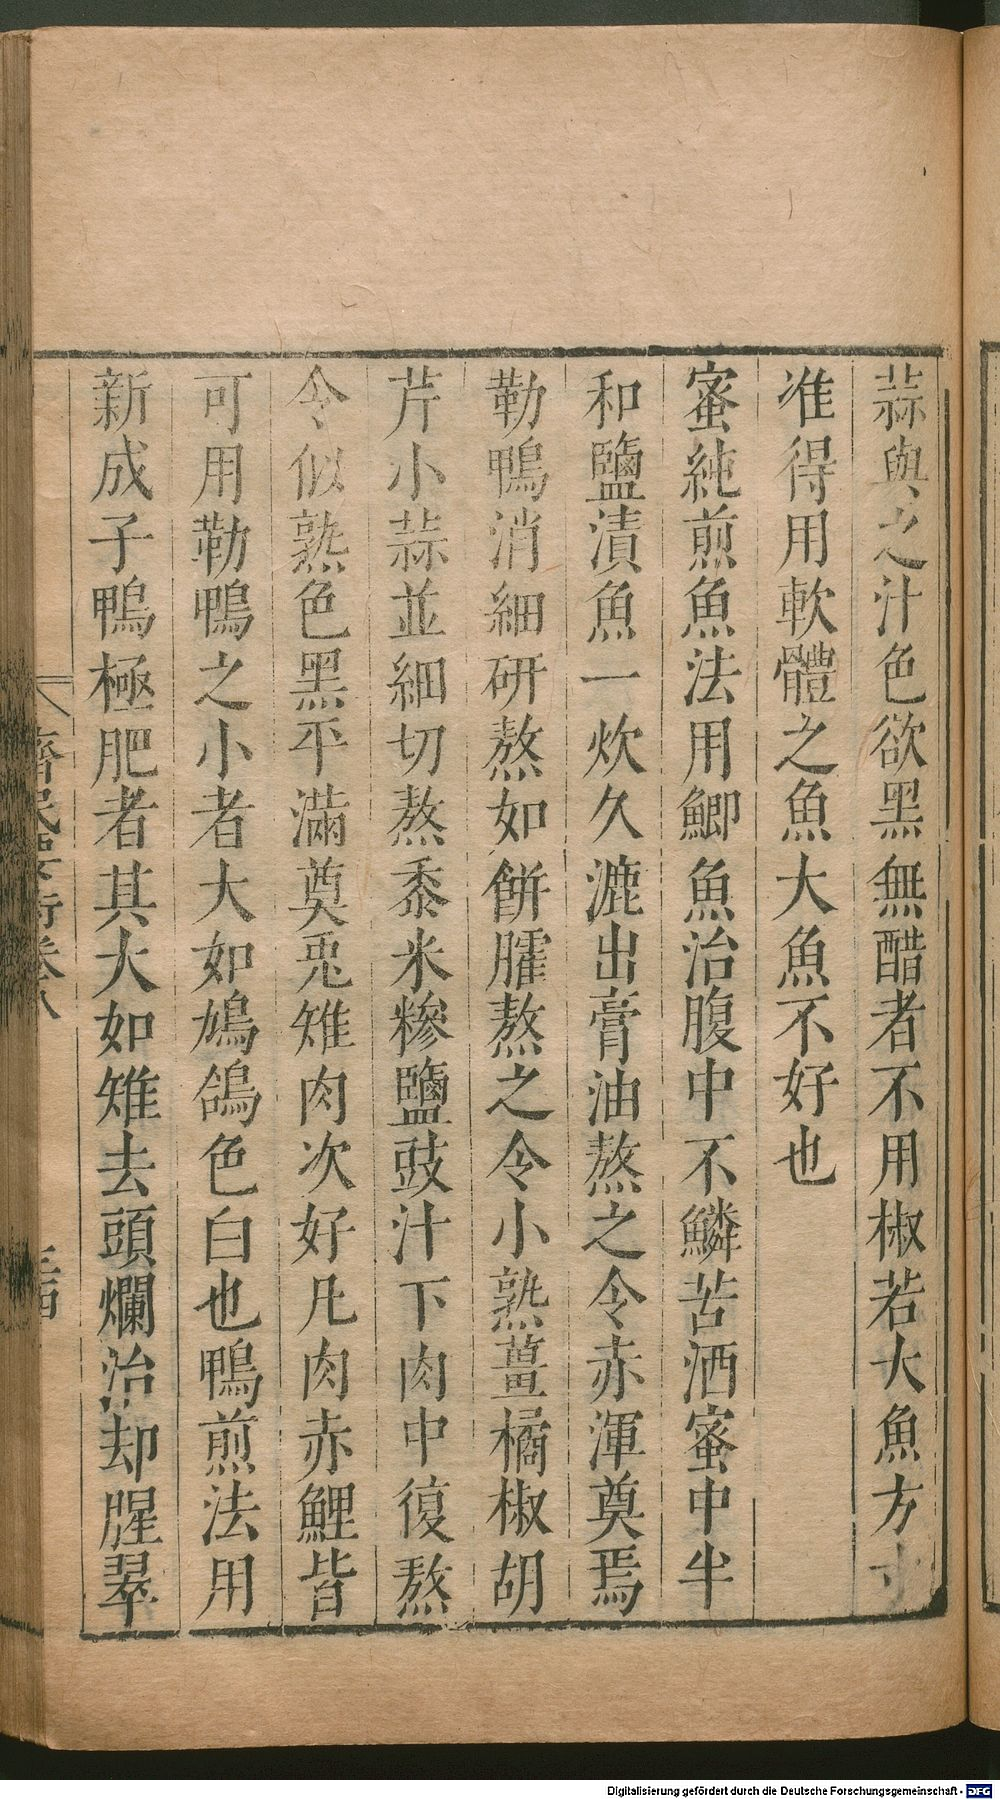 蒜與之汁色欲黑無醋者不用椒若大魚方寸
准得用軟體之魚大魚不好也
蜜純煎魚法用鯽魚治腹中不鱗苦酒蜜中半
和鹽漬魚一炊久漉出膏油熬之令赤渾奠焉
勒鴨消細研熬如餅臛熬之令小熟薑橘椒胡
芹小蒜並細切熬黍米糝鹽豉汁下肉中復熬
令似熟色黑平滿奠兎雉肉次好凡肉赤鯉皆
可用勒鴨之小者大如鳩鴿色白也鴨煎法用
新成子鴨極肥者其大如雉去頭爛治却腥翠
齊民要術卷八
三四
Digitalisierung gefördert durch die Deutsche Forschungsgemeinschaft - DFG